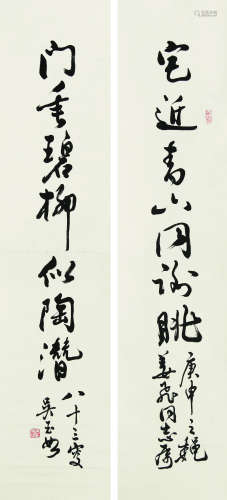 宅近青山同谢眺
庚申之
姜飛同志属
门垂碧柳似陶潛
八十三叟
吴玉如